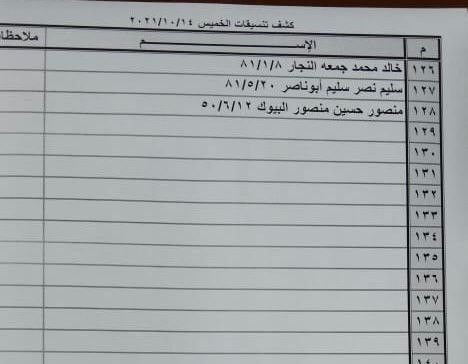 كشف تنسيقات الخميس ٢٠٢١/١٠/١٤
م الإســــم ملاحظا
١٢٦ خالد محمد جمعه النجار ٨١/١/٨
١٢٧ سليم نصر سليم أبوناصر ٨١/٥/٢٠
١٢٨ منصور حسين منصور البيوك ٥٠/٦/١٢
١٢٩
١٣٠
١٣١
١٣٢
١٣٣
١٣٤
١٣٥
١٣٦
١٣٧
١٣٨
١٣٩